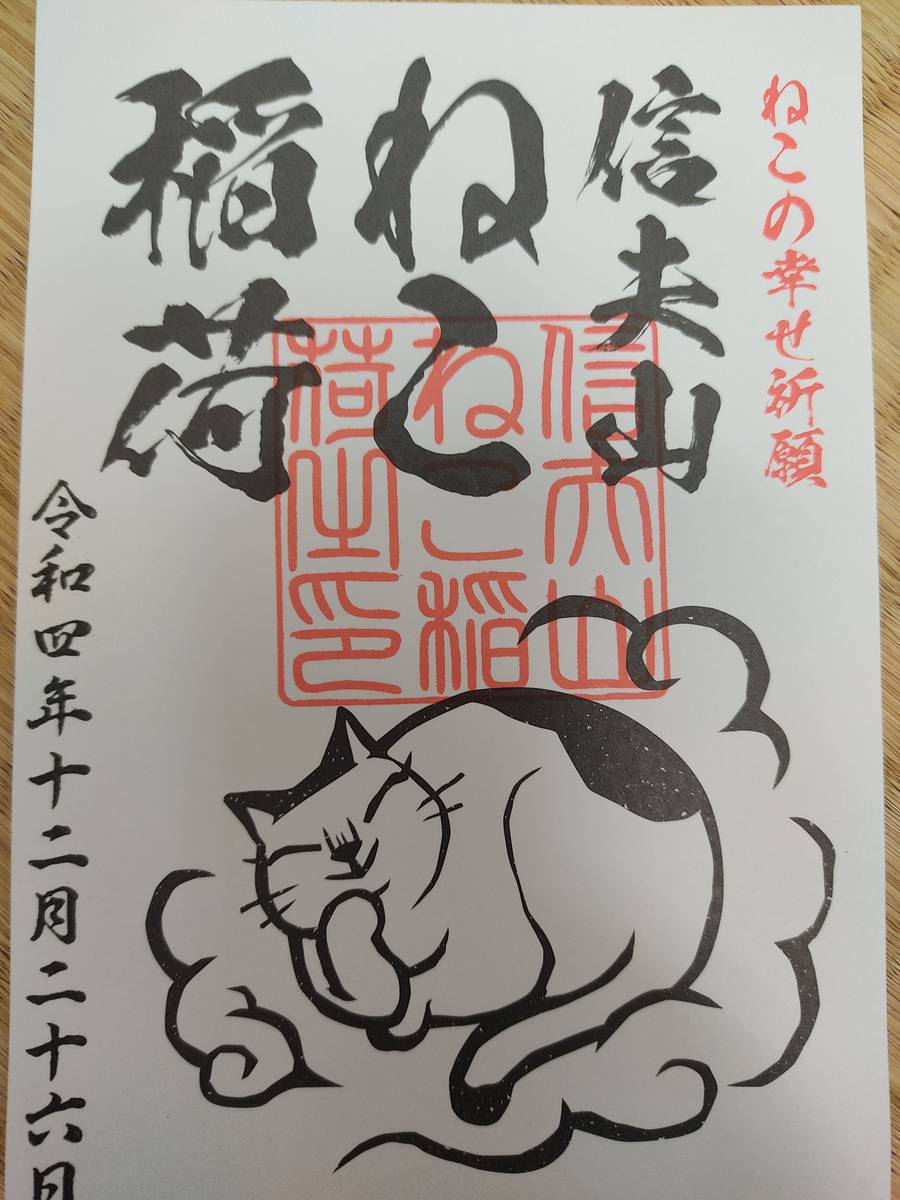 ねこの幸せ祈願
信夫山
ねこ
稲荷
信夫山
ねこ稲
荷之印
令和四年十二月二十六日